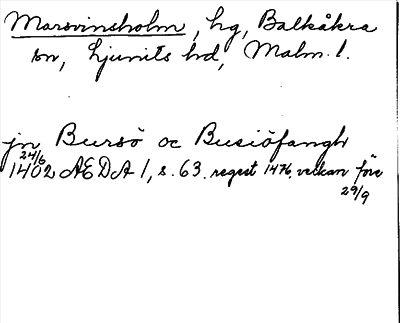 Marsvinsholm, hg, Balkåkra
sn, Ljunits hd, Malm. l.
jn Bursö oc Busiöfangh
24/6
1402 AEDA 1, s. 63. regest 1476, veckan före
29/9